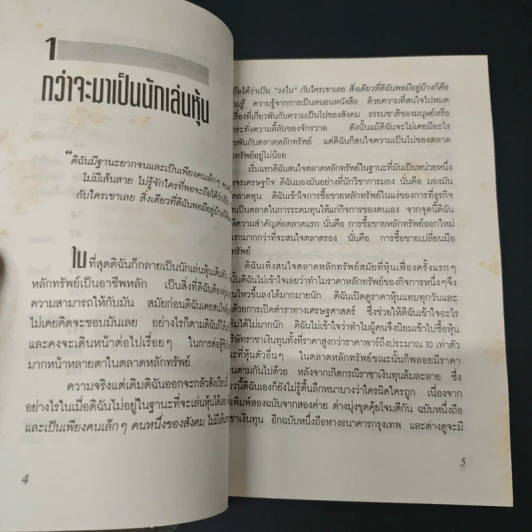 1
กว่าจะมาเป็นนักเล่นหุ้น
"ดิฉันมีฐานะยากจนและเป็นเพียงคนเล็กๆ
ไม่มีเส้นสาย ไม่รู้จักใครที่พอจะถือได้ว่า
กับใครเขาเลย สิ่งเดียวที่ดิฉันพอมีอยู่บ้าง
ในที่สุดดิฉันก็กลายเป็นนักเล่นหุ้น
หลักทรัพย์เป็นอาชีพหลัก เป็นสิ่งที่ดิฉันต้อง
ความสามารถให้กับมัน สมัยก่อนดิฉันเคย
ไม่เคยคิดจะชอบมันเลย อย่างไรก็ตามดิฉัน
และคงจะเดินหน้าต่อไปเรื่อยๆ ในการต่อสู้
มากหน้าหลายตาในตลาดหลักทรัพย์
ความจริงแต่เดิมดิฉันออกจะกลัว
อย่างไรในเมื่อดิฉันไม่อยู่ในฐานะที่จะเล่นหุ้นได้
และเป็นเพียงคนเล็กๆ คนหนึ่งของสังคม
4
ถือได้ว่าเป็น "วงใน" กับใครเขาเลย สิ่งเดียวที่ดิฉันพอมีอยู่บ้างก็คือ
ความรู้จากการเป็นหนอนหนังสือ ด้วยความที่สนใจไปหมด
เรื่องที่เกี่ยวพันกับความเป็นไปของสังคม ธรรมชาติของมนุษย์หรือ
กระทั่งความลี้ลับของจักรวาล ดังนั้นแม้ดิฉันจะไม่เคยมีอะไร
เกี่ยวพันกับตลาดหลักทรัพย์ แต่ดิฉันก็สนใจความเป็นไปของตลาด
หลักทรัพย์อยู่ไม่น้อย
เริ่มแรกดิฉันสนใจตลาดหลักทรัพย์ในฐานะที่มันเป็นหน่วยหนึ่ง
ของเศรษฐกิจ ดิฉันมองมันอย่างที่นักวิชาการมอง นั่นคือ มองมัน
ตลาดทุน ดิฉันเข้าใจการซื้อขายหลักทรัพย์ในแง่ของการที่ธุรกิจ
เป็นตลาดในการระดมทุนให้แก่กิจการของตนเอง จากจุดนี้ดิฉัน
ความสำคัญต่อตลาดแรก นั่นคือ การซื้อขายหลักทรัพย์ออกใหม่
แรกมากกว่าที่จะสนใจตลาดรอง นั่นคือ การซื้อขายเปลี่ยนมือ
ทรัพย์
ดิฉันเพิ่งสนใจตลาดหลักทรัพย์สมัยที่หุ้นเฟื่องครั้งแรกๆ
ไม่เข้าใจเลยว่าทำไมราคาหลักทรัพย์ของกิจการหนึ่งๆ จึง
ไหวขึ้นลงได้มากมายนัก ดิฉันเปิดดูราคาหุ้นแทบทุกวันและ
ด้วยการเปิดตำราทางเศรษฐศาสตร์ ซึ่งช่วยให้ดิฉันเข้าใจอะไร
ได้ไม่มากนัก ดิฉันไม่เข้าใจว่าทำไมผู้คนจึงนิยมเข้าไปซื้อหุ้น
ราชาเงินทุนทั้งที่ราคาสูงกว่าราคาพาร์ถึงประมาณ 10 เท่าตัว
หุ้นตัวอื่นๆ ในตลาดหลักทรัพย์ขณะนั้นก็พลอยมีราคา
ตามกันไปด้วย หลังจากเกิดกรณีราชาเงินทุนล้มละลาย ซึ่ง
นี้ดิฉันเองก็ยังไม่รู้ตื้นลึกหนาบางว่าใครผิดใครถูก เนื่องจาก
พิมพ์สองฉบับจากสองค่าย ต่างมุ่งขุดคุ้ยโจมตีกัน ฉบับหนึ่งถือ
ราชาเงินทุน อีกฉบับหนึ่งถือหางธนาคารกรุงเทพ และต่างดูจะมี
5